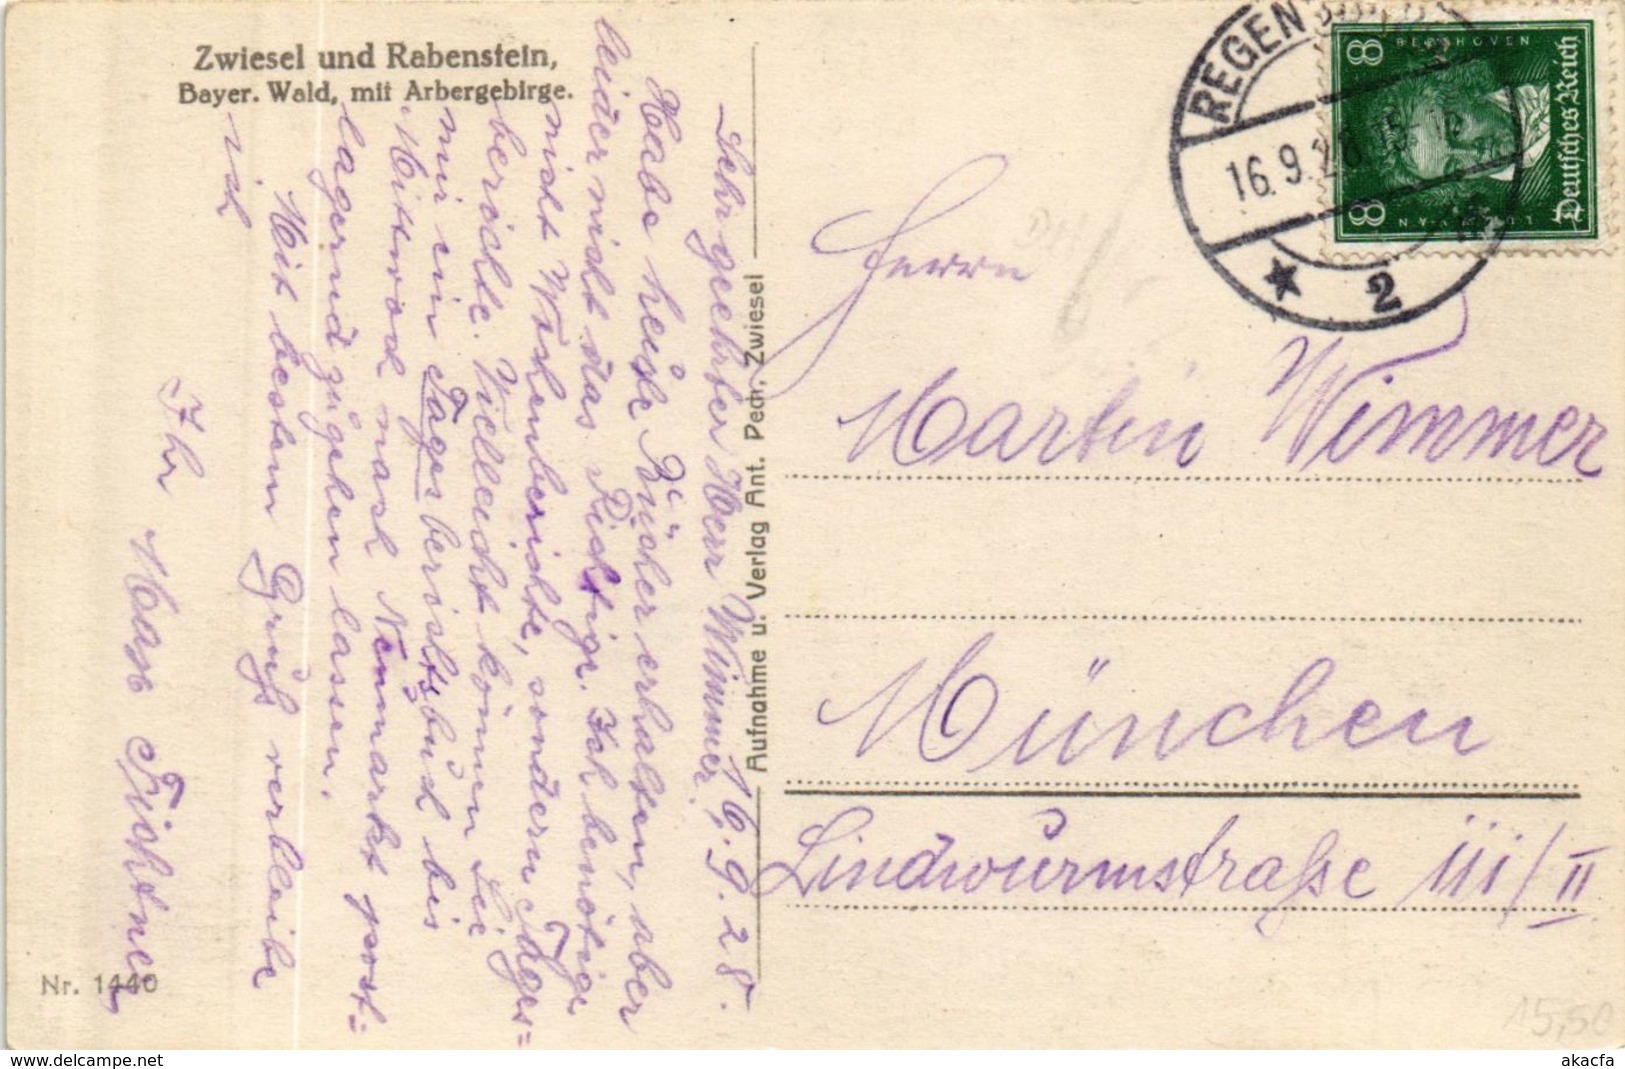 Zwiesel und Rabenstein,
Bayer. Wald, mit Arbergebirge.
16.9.28.
Sehr geehrter Herr Wimmer!
Habe heute die Bücher erhalten, aber
leider nicht das Richtige. Ich benötige
nicht Wochenberichte, sondern Tages=
berichte. Vielleicht können Sie
mir ein Tagesberichtsbuch bis
Mittwoch nach Neumarkt post=
lagernd zugehen lassen.
Mit bestem Gruß verbleibe
ich
Ihr Max Fichtner
Aufnahme u. Verlag Ant. Pech, Zwiesel
Nr. 1440
REGEN
16.9.28.
* 2
8 BEETHOVEN
Deutsches Reich
8
Herrn
Martin Wimmer
München
Lindwurmstraße 111/II
15,50
akacfa.com